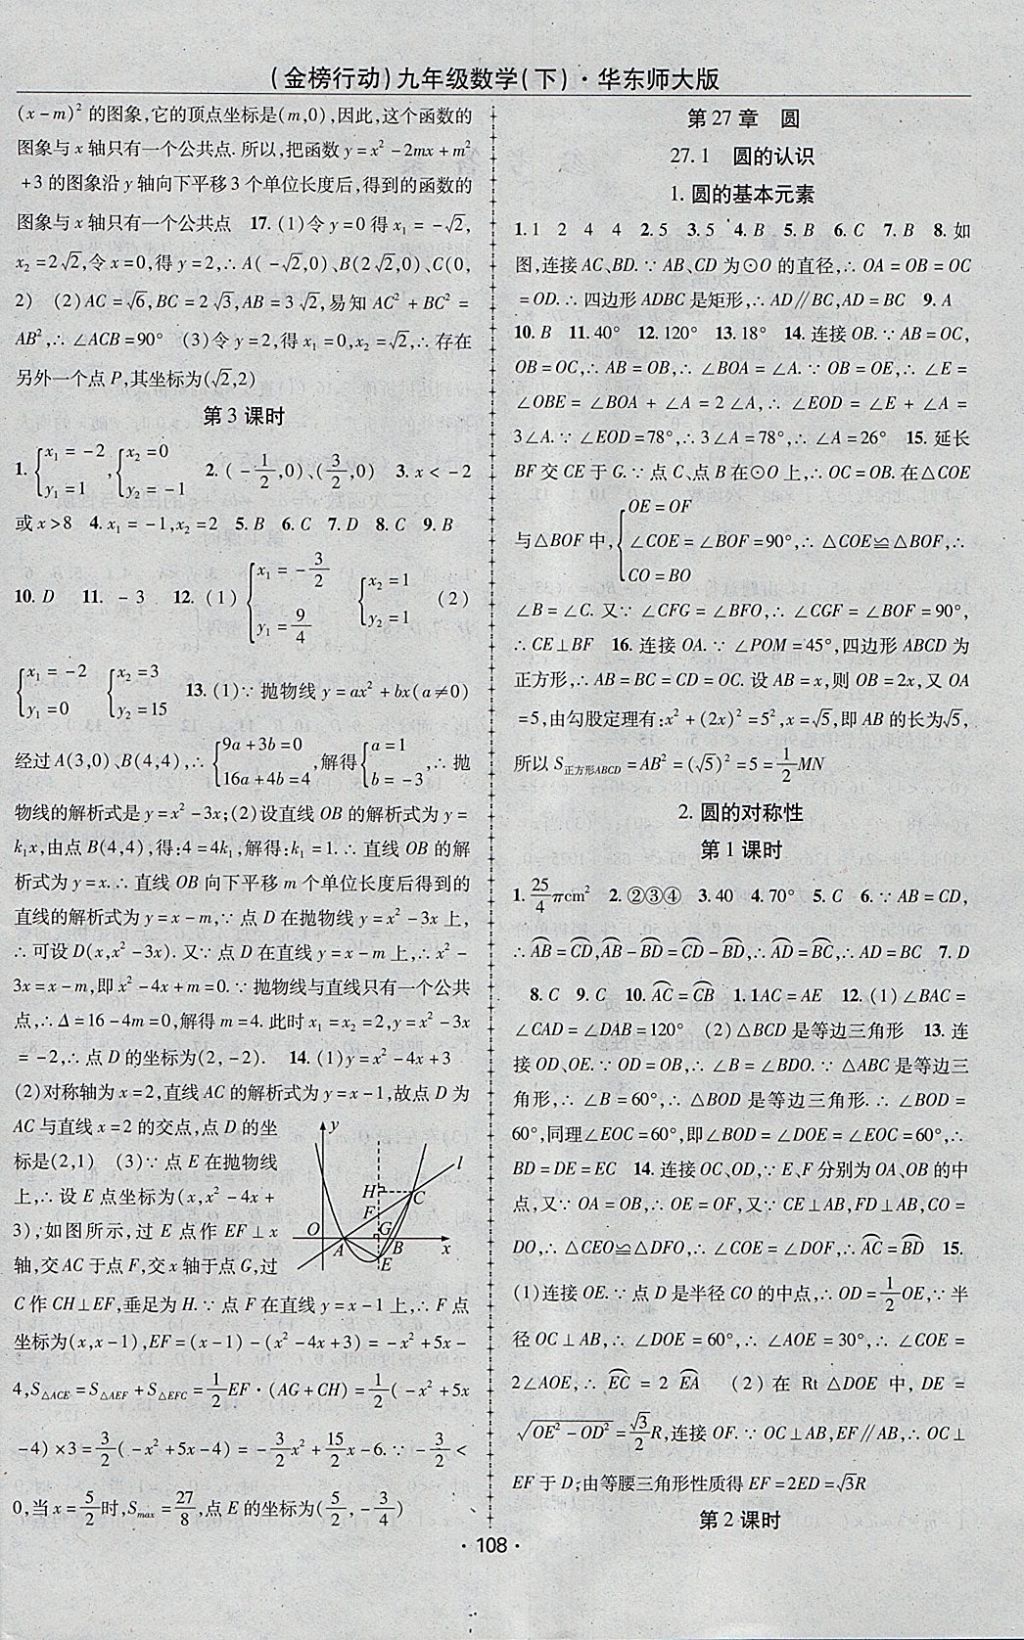 (金榜行动)九年级数学(下)·华东师大版
(x-m)² 的图象,它的顶点坐标是(m,0),因此,这个函数的
图象与 x 轴只有一个公共点.所以,把函数 y=x²-2mx+m²
+3 的图象沿 y 轴向下平移 3 个单位长度后,得到的函数的
图象与 x 轴只有一个公共点 17.(1)令 y=0 得 x₁=-√2,
x₂=2√2,令 x=0,得 y=2,∴A(-√2,0)、B(2√2,0)、C(0,
2) (2)AC=√6,BC=2√3,AB=3√2,易知 AC²+BC²=
AB²,∴∠ACB=90° (3)令 y=2,得 x₁=0,x₂=√2,∴存在
另外一个点 P,其坐标为(√2,2)
第 3 课时
1. {x₁=-2 y₁=1, {x₂=0 y₂=-1 2.(-1/2,0)、(3/2,0) 3. x<-2
或 x>8 4. x₁=-1,x₂=2 5. B 6. C 7. D 8. C 9. B
10. D 11. -3 12. (1) {x₁=-3/2 y₁=9/4 {x₂=1 y₂=1 (2)
{x₁=-2 y₁=0 {x₂=3 y₂=15 13. (1)∵抛物线 y=ax²+bx(a≠0)
经过A(3,0)、B(4,4),∴{9a+3b=0 16a+4b=4,解得{a=1 b=-3,∴抛
物线的解析式是 y=x²-3x;(2)设直线 OB 的解析式为 y=
k₁x,由点 B(4,4),得:4=4k₁,解得:k₁=1.∴直线 OB 的解
析式为 y=x.∴直线 OB 向下平移 m 个单位长度后得到的
直线的解析式为 y=x-m,∵点 D 在抛物线 y=x²-3x 上,
∴可设 D(x,x²-3x).又∵点 D 在直线 y=x-m 上,∴x²-
3x=x-m,即 x²-4x+m=0.∵抛物线与直线只有一个公共
点,∴Δ=16-4m=0,解得 m=4.此时 x₁=x₂=2,y=x²-3x
=-2,∴点 D 的坐标为(2,-2). 14. (1)y=x²-4x+3
(2)对称轴为 x=2,直线 AC 的解析式为 y=x-1,故点 D 为
AC 与直线 x=2 的交点,点 D 的坐
标是(2,1) (3)∵点 E 在抛物线
上,∴设 E 点坐标为(x,x²-4x+
3),如图所示,过 E 点作 EF⊥x
轴,交 AC 于点 F,交 x 轴于点 G,过
y
l
H
C
F
O
G
A
B
x
E
C 作 CH⊥EF,垂足为 H.∵点 F 在直线 y=x-1 上,∴F 点
坐标为(x,x-1),EF=(x-1)-(x²-4x+3)=-x²+5x-
4,S△ACE=S△AEF+S△EFC=1/2EF·(AG+CH)=1/2(-x²+5x
-4)×3=3/2(-x²+5x-4)=-3/2x²+15/2x-6.∵-3/2<
0,当 x=5/2时,Smax=27/8,点 E 的坐标为(5/2,-3/4)
第 27 章 圆
27.1 圆的认识
1. 圆的基本元素
1. 1 2 4 4 2. 5 3. 5 4. B 5. B 6. C 7. B 8. 如
图,连接 AC、BD.∵AB、CD 为⊙O 的直径,∴OA=OB=OC
=OD.∴四边形 ADBC 是矩形,∴AD∥BC,AD=BC 9. A
10. B 11. 40° 12. 120° 13. 18° 14. 连接 OB.∵AB=OC,
OB=OC,∴AB=OB,∴∠BOA=∠A.∵OB=OE,∴∠E=
∠OBE=∠BOA+∠A=2∠A,∴∠EOD=∠E+∠A=
3∠A.∵∠EOD=78°,∴3∠A=78°,∴∠A=26° 15. 延长
BF 交 CE 于 G.∵点 C、点 B 在⊙O 上,∴OC=OB.在△COE
与△BOF 中,{OE=OF ∠COE=∠BOF=90°,∴△COE≌△BOF,∴ CO=BO
∠B=∠C.又∵∠CFG=∠BFO,∴∠CGF=∠BOF=90°,
∴CE⊥BF 16. 连接 OA.∵∠POM=45°,四边形 ABCD 为
正方形,∴AB=BC=CD=OC.设 AB=x,则 OB=2x,又 OA
=5,由勾股定理有:x²+(2x)²=5²,x=√5,即 AB 的长为√5,
所以 S正方形ABCD=AB²=(√5)²=5=1/2MN
2. 圆的对称性
第 1 课时
1. 25/4πcm² 2. ②③④ 3. 40 4. 70° 5. C 6. ∵AB=CD,
∴A͡B=C͡D,A͡B-B͡D=C͡D-B͡D,∴A͡D=B͡C,∴AD=BC 7. D
8. C 9. C 10. A͡C=C͡B 1. 1AC=AE 12. (1)∠BAC=
∠CAD=∠DAB=120° (2)△BCD 是等边三角形 13. 连
接 OD、OE.∵OD=OB,∴∠B=∠BDO.∵△ABC 是等边三
角形,∴∠B=60°,∴△BOD 是等边三角形.∴∠BOD=
60°,同理∠EOC=60°,即∠BOD=∠DOE=∠EOC=60°,∴
BD=DE=EC 14. 连接 OC、OD,∵E、F 分别为 OA、OB 的中
点,又∵OA=OB,∴OE=OF,又∵CE⊥AB,FD⊥AB,CO=
DO,∴△CEO≌△DFO,∴∠COE=∠DOF,∴A͡C=B͡D 15.
(1)连接 OE.∵点 D 是半径 CO 的中点,∴OD=1/2OE,∵半
径 OC⊥AB,∴∠DOE=60°,∴∠AOE=30°,∴∠COE=
2∠AOE,∴E͡C=2 E͡A (2)在 Rt△DOE 中,DE=
√(OE²-OD²)=√3/2R,连接 OF.∵OC⊥AB,EF∥AB,∴OC⊥
EF 于 D;由等腰三角形性质得 EF=2ED=√3R
第 2 课时
·108·